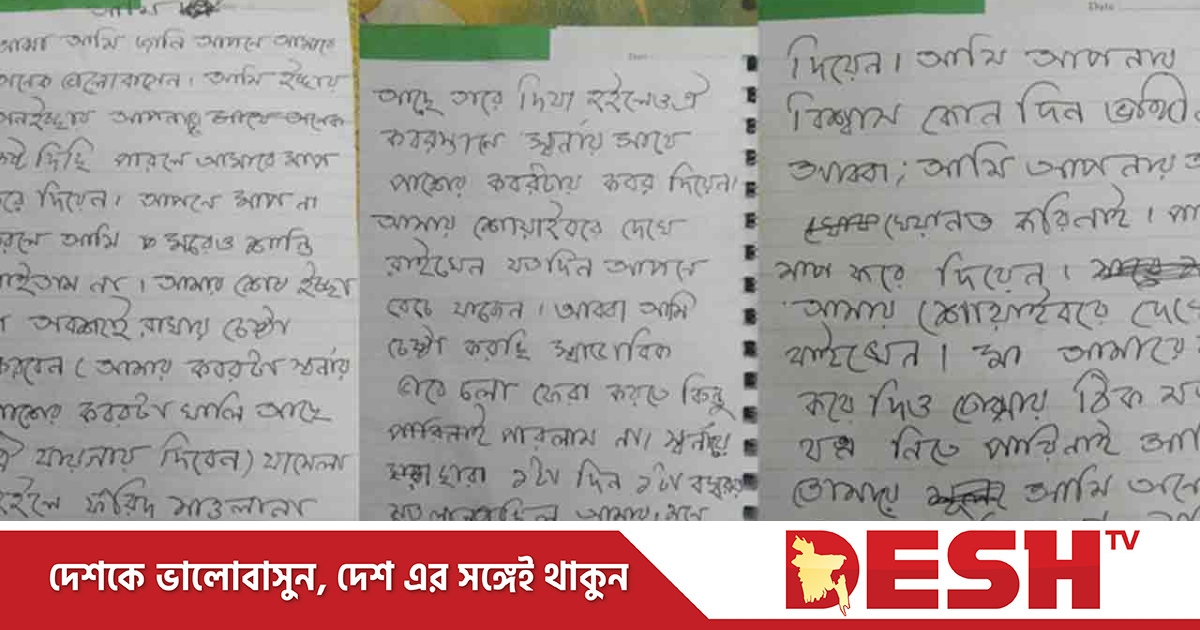 আমি
আমা আমি জানি আপনে আমারে
অনেক ভালোবাসেন। আমি ইচ্ছায়
অনইচ্ছায় আপনার সাথে অনেক
কষ্ট দিছি পারলে আমারে মাপ
করে দিয়েন। আপনে মাপ না
করলে আমি মরেও শান্তি
পাইতাম না। আমার শেষ ইচ্ছা
অবশ্যই রাখার চেষ্টা
করবেন (আমার কবরটা স্বর্নার
পাশের কবরটা খালি আছে
ঐ যায়নায় দিবেন) যামেলা
হইলে ফরিদ মাওলানা
Date
আছে তারে দিয়া হইলেওঐ
কবরস্থানে স্বর্নার সাথে
পাশের কবরটায় কবর দিয়েন।
আমার শোয়াইবরে দেখে
রাইখেন যতদিন আপনে
বেচে থাকেন। আব্বা আমি
চেষ্টা করছি স্বাভাবিক
ভাবে চলা ফেরা করতে কিন্তু
পারিনাই পারলাম না। স্বর্নারে
ছাড়া ১টা দিন ১টা বছরের
মত আমার মনে
Date
দিয়েন। আমি আপনার
বিশ্বাস কোন দিন
আব্বা; আমি আপনার
খেয়ানত করিনাই।
মাপ করে দিয়েন।
আমার শোয়াইবরে দেখে
রাইখেন। মা আমারে
করে দিও তোমার ঠিক মত
যত্ন নিতে পারিনাই
তোমার আমি
দেশকে ভালোবাসুন, দেশ এর সঙ্গেই থাকুন
DESH TV